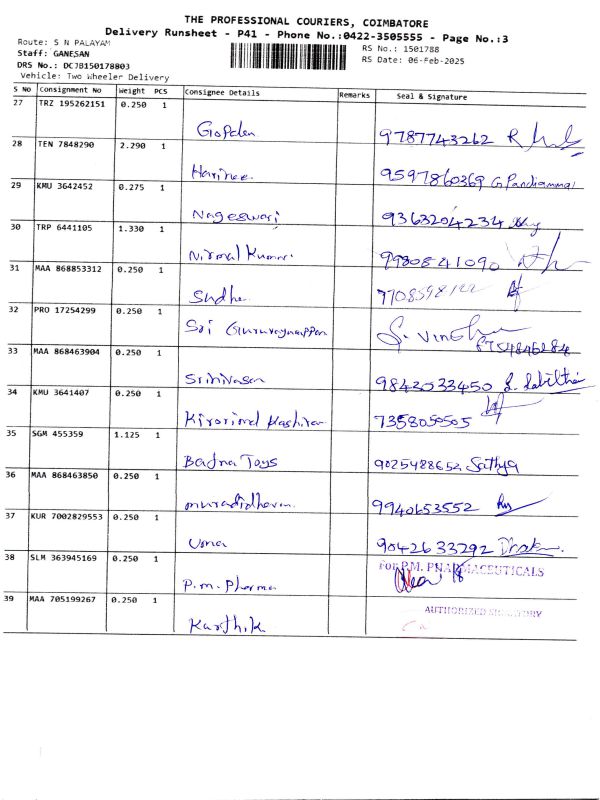 THE PROFESSIONAL COURIERS, COIMBATORE
Delivery Runsheet - P41 - Phone No.:0422-3505555 - Page No.:3
Route: S N PALAYAM
RS No.: 1501788
Staff: GANESAN
RS Date: 06-Feb-2025
DRS No.: DC7B150178803
Vehicle: Two Wheeler Delivery
S No Consignment No Weight PCS Consignee Details Remarks Seal & Signature
27 TRZ 195262151 0.250 1
Gopalan 9787743262
28 TEN 7848290 2.290 1
Harinee 9597860369 G. Pandiammal
29 KMU 3642452 0.275 1
Nageswari 9363204234
30 TRP 6441105 1.330 1
Nirmal Kumar 9980841090
31 MAA 868853312 0.250 1
Sudha
32 PRO 17254299 0.250 1
Sri Guruvayurappan
33 MAA 868463904 0.250 1
Srinivasan 9843033450
34 KMU 3641407 0.250 1
7358050505
35 SGM 455359 1.125 1
Toys 9025488652 Sathya
36 MAA 868463850 0.250 1
9940653552
37 KUR 7002829553 0.250 1
Uma 9042633292
38 SLM 363945169 0.250 1
FOR P.M. PHARMACEUTICALS
P.M. Pharma
39 MAA 705199267 0.250 1
AUTHORIZED SIGNATORY
Karthik